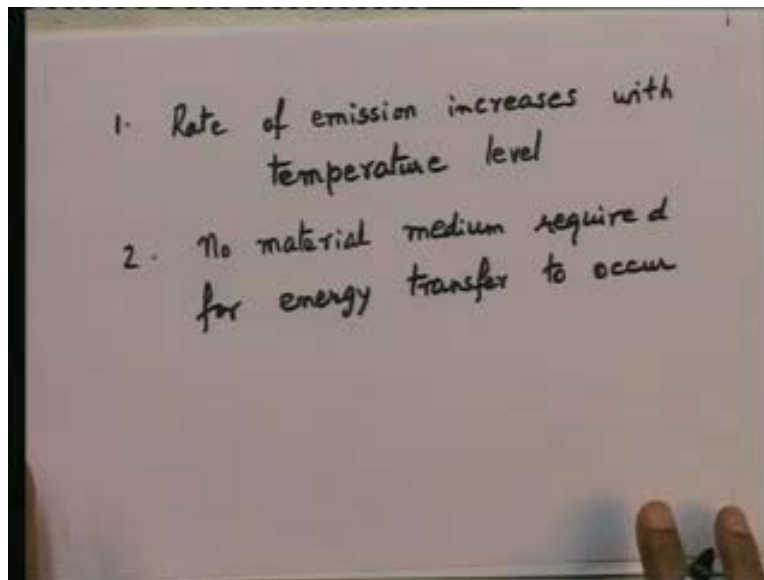 1. Rate of emission increases with
temperature level
2. No material medium required
for energy transfer to occur